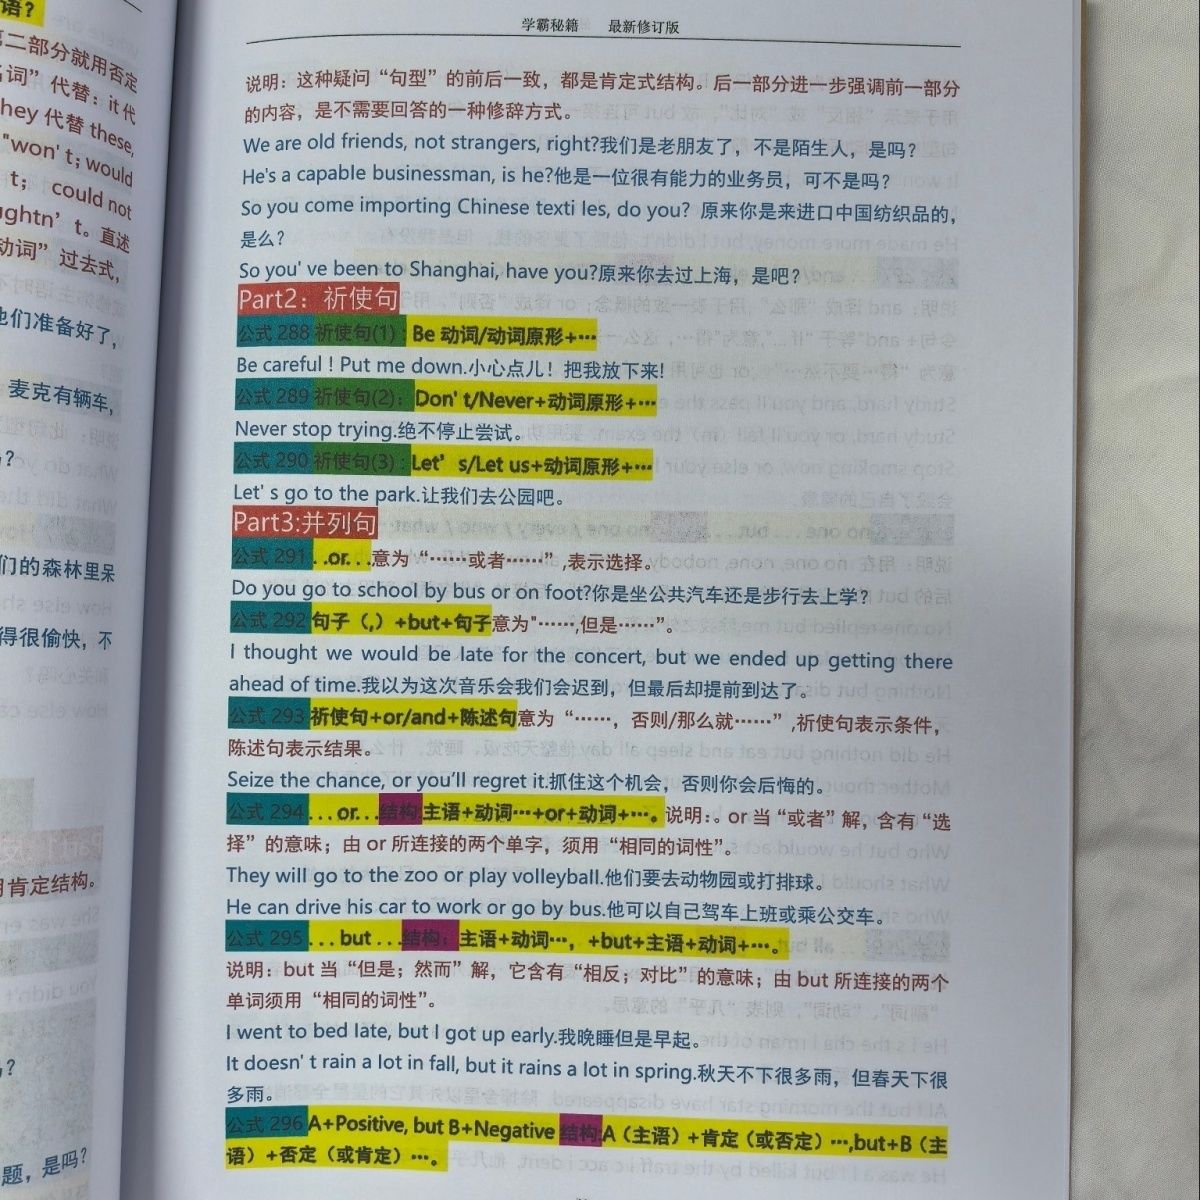 语？
第二部分就用否定
名词”代替：it 代
they 代替 these,
"won't；would
t； could not
ughtn’t。直述
动词”过去式，
他们准备好了，
麦克有辆车，
们的森林里呆
得很愉快，不
用肯定结构。
题，是吗？
学霸秘籍 最新修订版
说明：这种疑问“句型”的前后一致，都是肯定式结构。后一部分进一步强调前一部分
的内容，是不需要回答的一种修辞方式。
We are old friends, not strangers, right?我们是老朋友了，不是陌生人，是吗？
He's a capable businessman, is he?他是一位很有能力的业务员，可不是吗？
So you come importing Chinese texti les, do you? 原来你是来进口中国纺织品的，
是么？
So you' ve been to Shanghai, have you?原来你去过上海，是吧？
Part2：祈使句
公式 288 祈使句(1)：Be 动词/动词原形+…
Be careful ! Put me down.小心点儿！把我放下来!
公式 289 祈使句(2)：Don' t/Never+动词原形+…
Never stop trying.绝不停止尝试。
公式 290 祈使句(3)：Let’ s/Let us+动词原形+…
Let' s go to the park.让我们去公园吧。
Part3:并列句
公式 291...or...意为“……或者……”,表示选择。
Do you go to school by bus or on foot?你是坐公共汽车还是步行去上学？
公式 292 句子（,）+but+句子意为"……,但是……”。
I thought we would be late for the concert, but we ended up getting there
ahead of time.我以为这次音乐会我们会迟到，但最后却提前到达了。
公式 293 祈使句+or/and+陈述句意为“……，否则/那么就……”,祈使句表示条件，
陈述句表示结果。
Seize the chance, or you’ll regret it.抓住这个机会，否则你会后悔的。
公式 294 ...or...结构:主语+动词…+or+动词+…。说明:。or 当“或者”解，含有“选
择”的意味；由 or 所连接的两个单字，须用“相同的词性”。
They will go to the zoo or play volleyball.他们要去动物园或打排球。
He can drive his car to work or go by bus.他可以自己驾车上班或乘公交车。
公式 295 ...but...结构：主语+动词…，+but+主语+动词+…。
说明：but 当“但是；然而”解，它含有“相反；对比”的意味；由 but 所连接的两个
单词须用“相同的词性”。
I went to bed late, but I got up early.我晚睡但是早起。
It doesn' t rain a lot in fall, but it rains a lot in spring.秋天不下很多雨，但春天下很
多雨。
公式 296 A+Positive, but B+Negative 结构:A（主语）+肯定（或否定）…,but+B（主
语）+否定（或肯定）…。